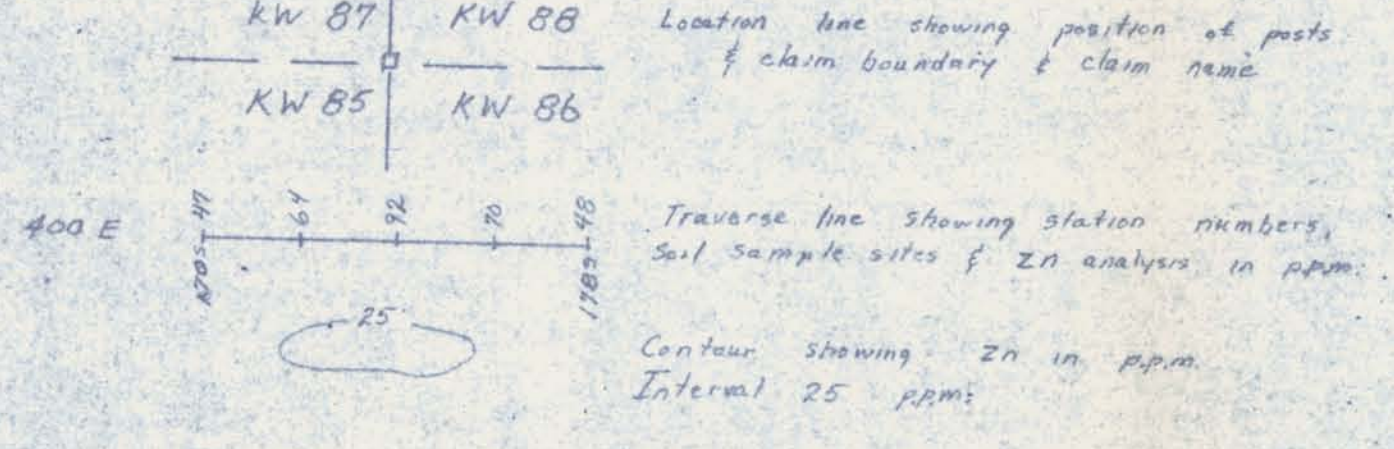 KW 87 KW 88
KW 85 KW 86
Location line showing position of posts
& claim boundary & claim name
400 E
47 64 92 70 48
1789S
Traverse line showing station numbers,
Soil Sample sites & Zn analysis in p.p.m.
25
Contour showing Zn in p.p.m.
Interval 25 p.p.m.